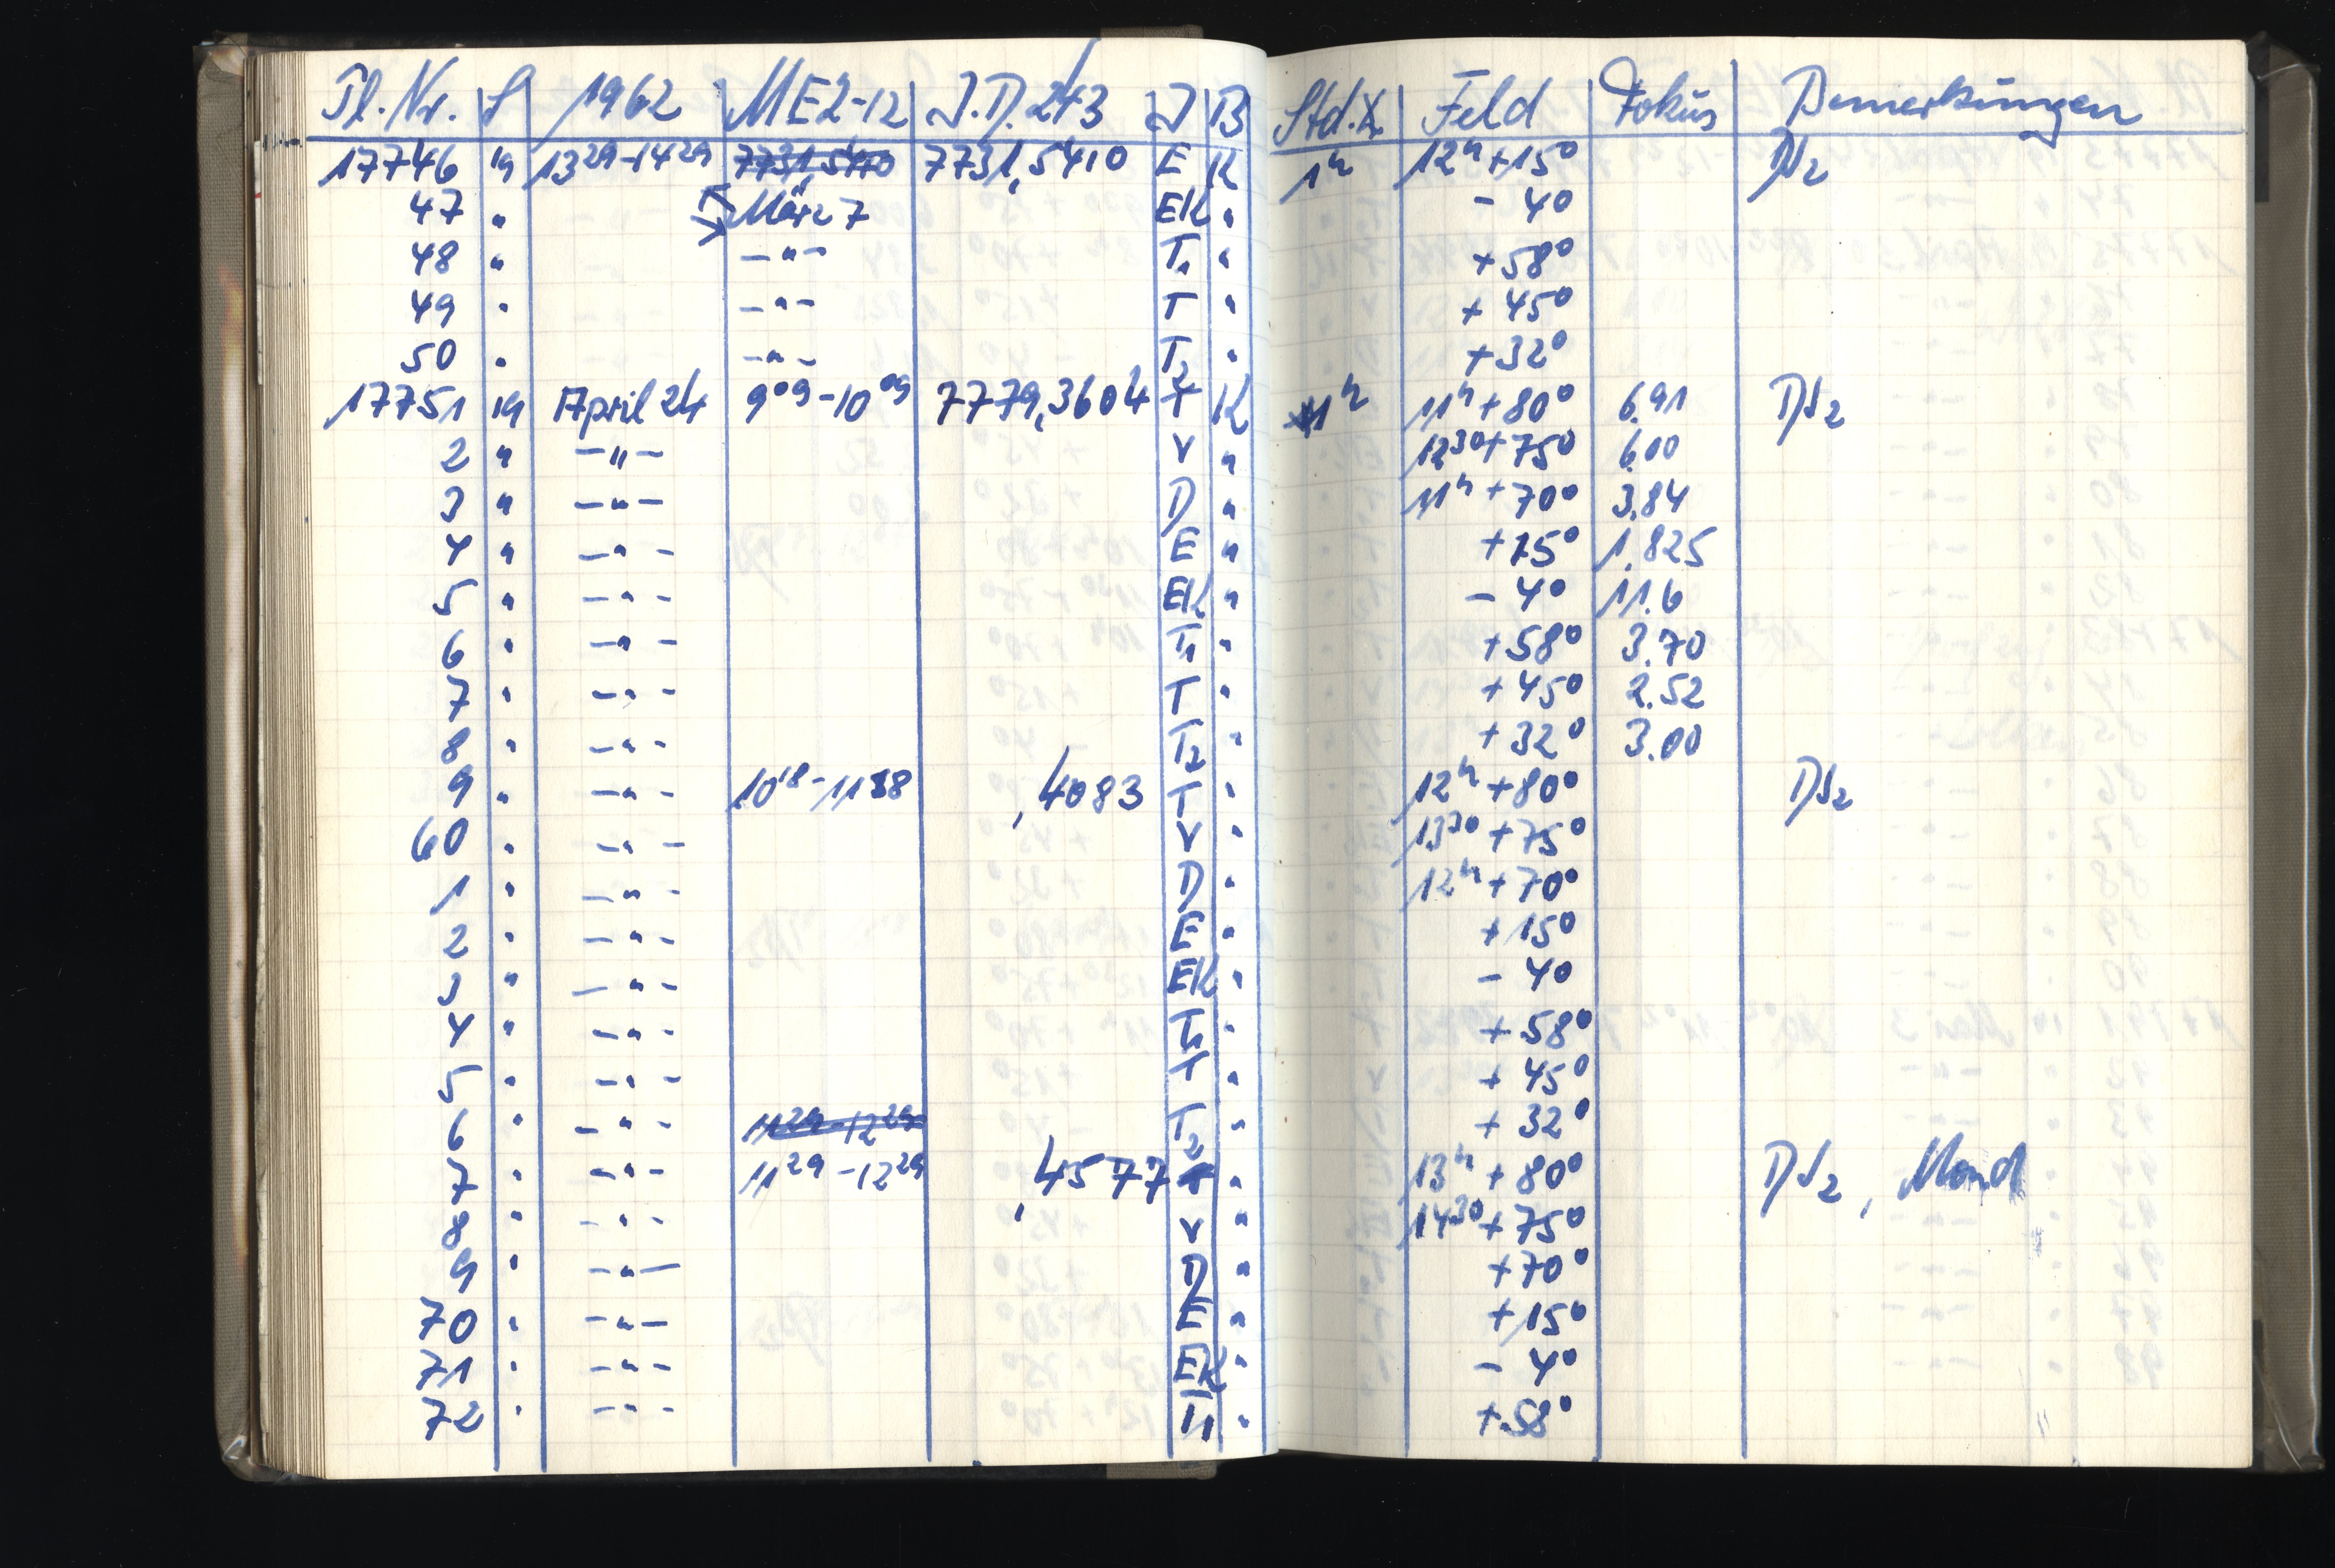 Pl.Nr. S 1962 MEZ-12 J.D.243 J B Std.X. Feld Fokus Bemerkungen
17746 19 13 29 - 14 29 7731,5410 7731,5410 E K 1h 12h +15° DS2
47 " März 7 EK " - 4°
48 " -"- T1 " +58°
49 " -"- T " +45°
50 " -"- T2 " +32°
17751 19 April 24 9 09 - 10 09 7779,3604 T K 1h 11h +80° 6.91 DS2
2 " -"- V " 12 30 +75° 6.00
3 " -"- D " 11h +70° 3.84
4 " -"- E " +15° 1.825
5 " -"- EK " - 4° 11.6
6 " -"- T1 " +58° 3.70
7 " -"- T " +45° 2.52
8 " -"- T2 " +32° 3.00
9 " -"- 10 18 - 11 18 ,4083 T " 12h +80° DS2
60 " -"- V " 13 30 +75°
1 " -"- D " 12h +70°
2 " -"- E " +15°
3 " -"- EK " - 4°
4 " -"- T1 " +58°
5 " -"- T " +45°
6 " -"- 11 29 - 12 29 T2 " +32°
7 " -"- 11 29 - 12 29 ,4577 T " 13h +80° DS2, Mond
8 " -"- V " 14 30 +75°
9 " -"- D " +70°
70 " -"- E " +15°
71 " -"- EK " - 4°
72 " -"- T1 " +58°